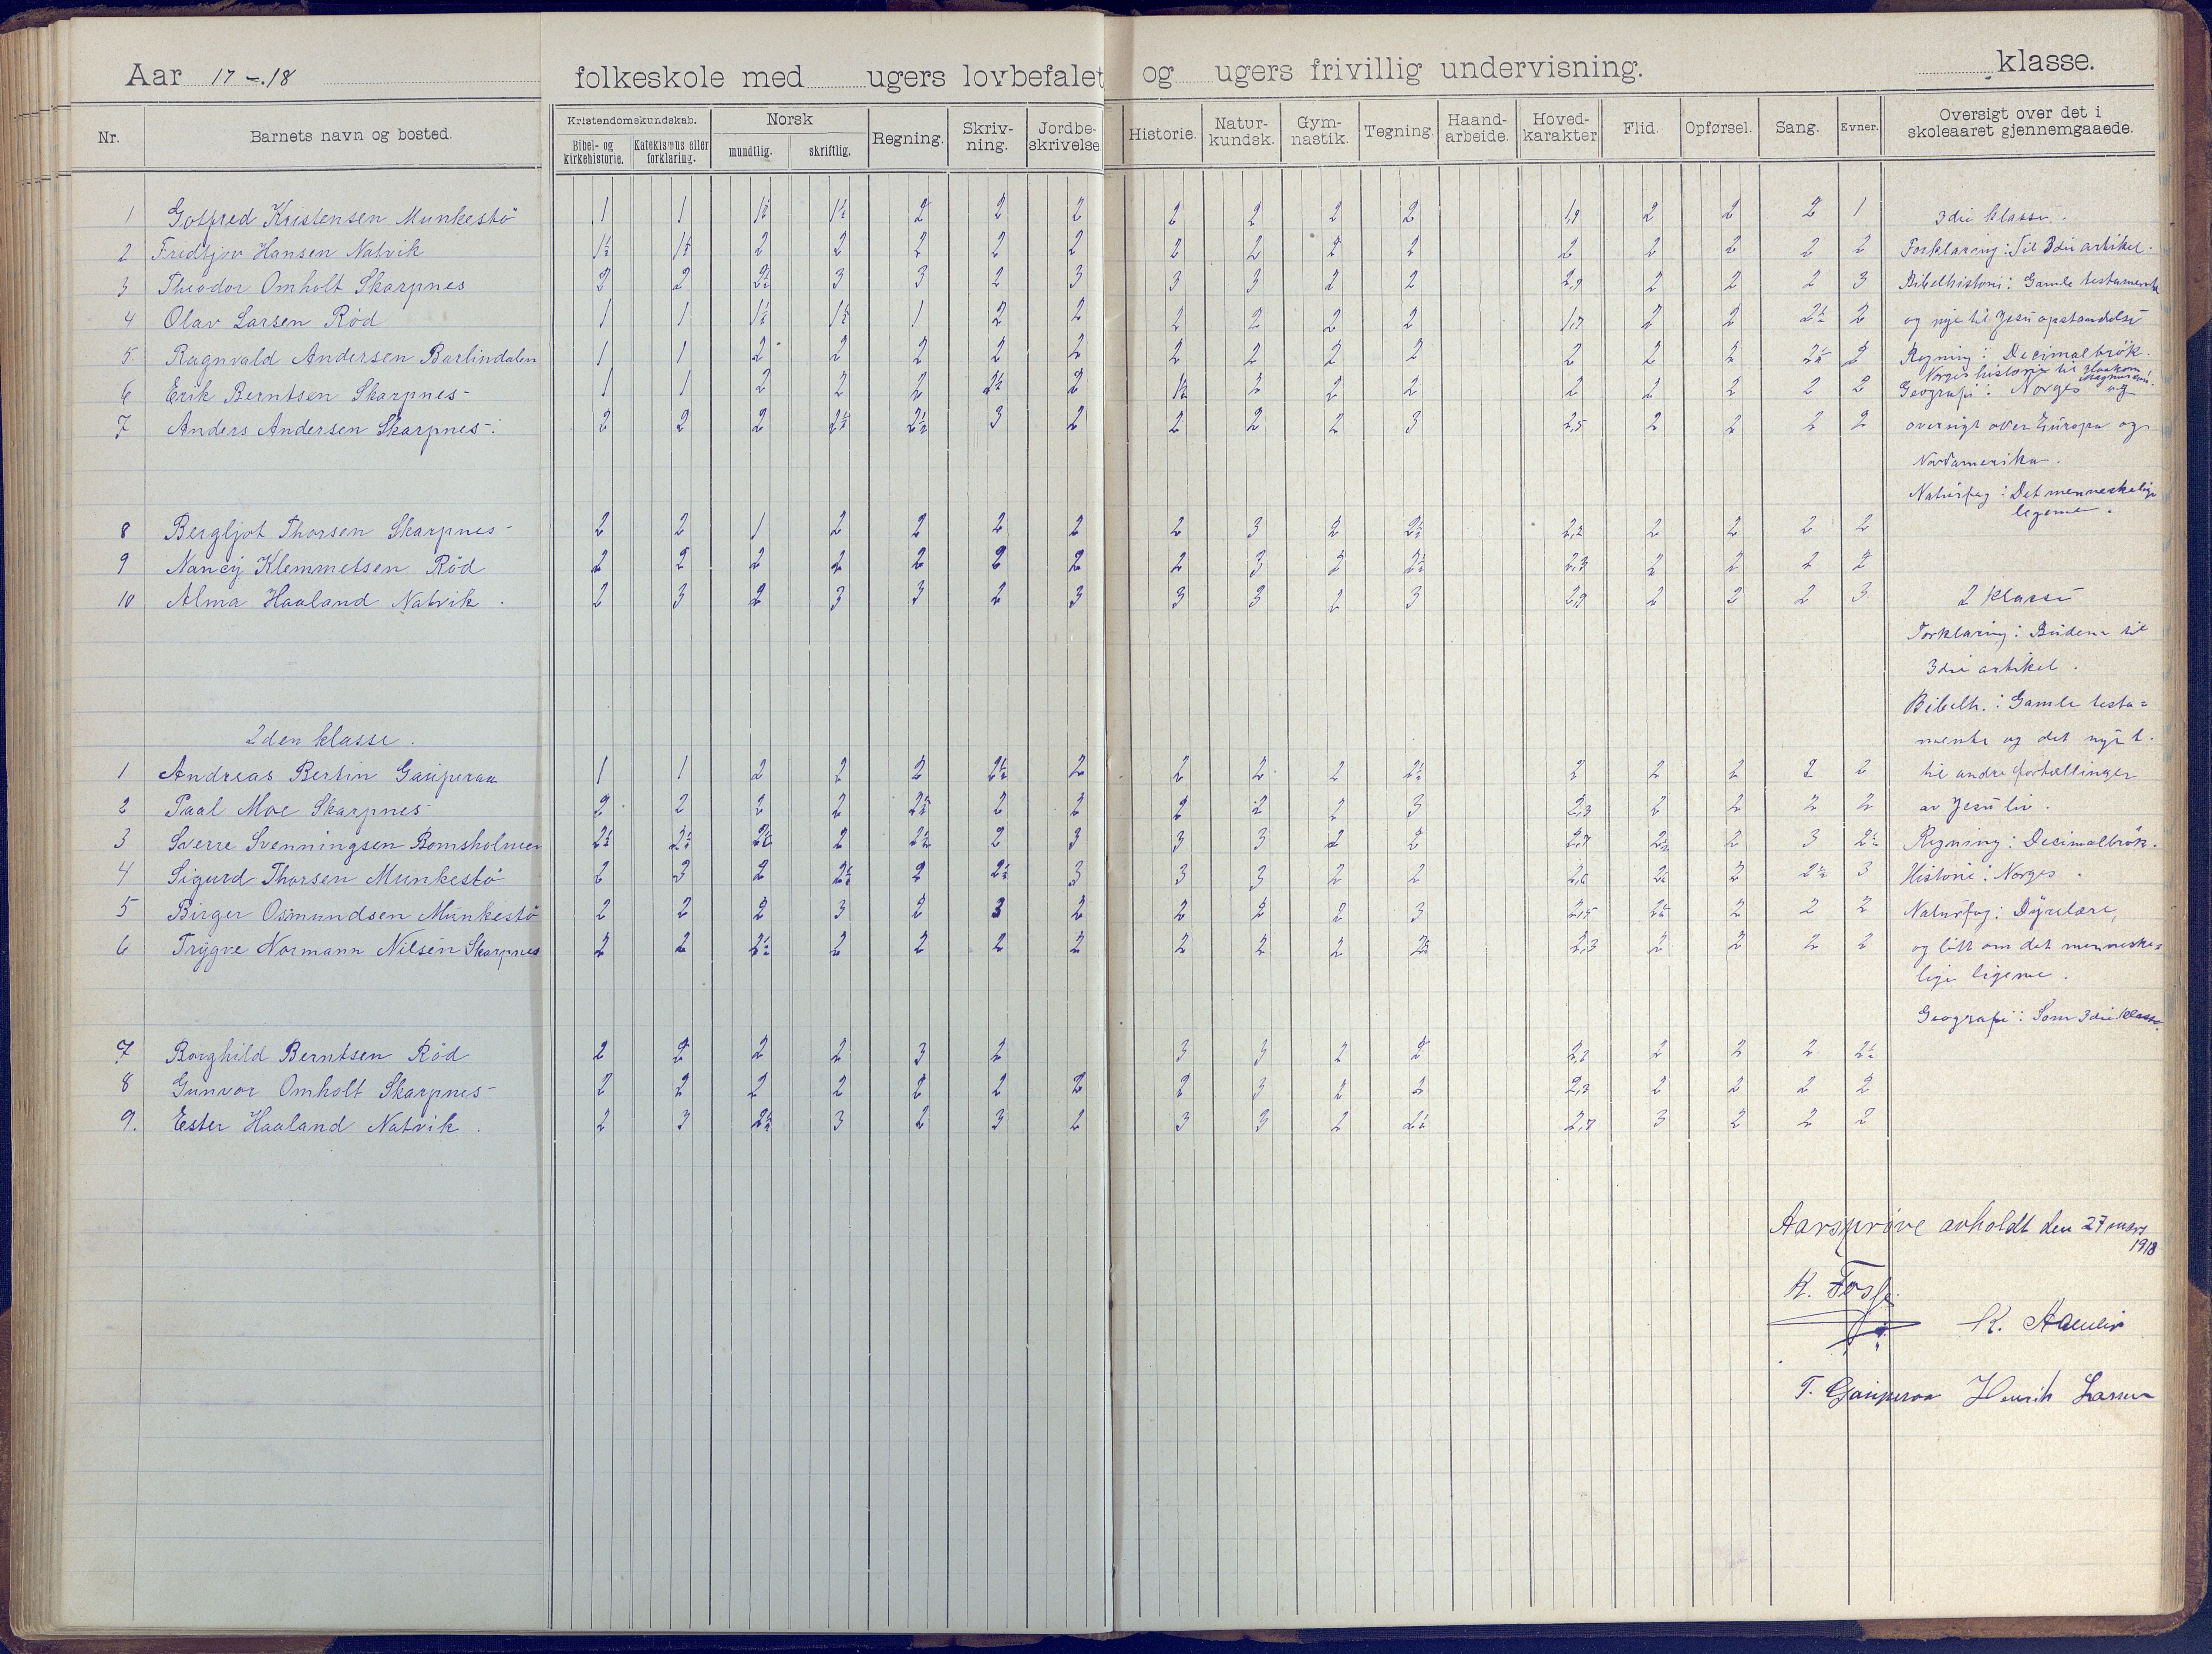 Aar 17–18 folkeskole med ugers lovbefalet og ugers frivillig undervisning. klasse.
Nr. Barnets navn og bosted. Kristendomskundskab. Bibel- og kirkehistorie. Katekismus eller forklaring. Norsk mundtlig. skriftlig. Regning. Skriv-ning. Jordbe-skrivelse. Historie. Natur-kundsk. Gym-nastik. Tegning. Haand-arbeide. Hoved-karakter Flid. Opførsel. Sang. Evner. Oversigt over det i skoleaaret gjennemgaaede.
1 Gotfred Kristensen Munkestö 1 1 1½ 1½ 2 2 2 2 2 2 2 1,9 2 2 2 1 3die klasse.
2 Fredtjov Hansen Natvik 1½ 1½ 2 2 2 2 2 2 2 2 2 2 2 2 2 2 Forklaring: Til 3die artikel.
3 Theodor Omholt Skarpnes 2 2 2½ 3 3 2 3 3 3 2 2 2,7 2 2 2 3 Bibelhistorie: Gamle testamente
4 Olav Larsen Röd 1 1 1½ 1½ 1 2 2 2 2 2 2 1,7 2 2 2½ 2 og nye til Jesu opstandelse
5 Ragnvald Andersen Barlindalen 1 1 2 2 2 2 2 2 2 2 2 2 2 2 2½ 2 Regning: Decimalbrök.
Norges historie til Haakon Magnussen.
6 Erik Berntsen Skarpnes- 1 1 2 2 2 2½ 2 1½ 2 2 2 2 2 2 2 2 Geografi: Norges og
7 Anders Andersen Skarpnes-. 2 2 2 2½ 2½ 3 2 2 2 2 3 2,5 2 2 2 2 oversigt over Europa og
Nordamerika.
Naturfag: Det menneskelige
legeme.
8 Bergljot Thorsen Skarpnes- 2 2 1 2 2 2 2 2 3 2 2½ 2,2 2 2 2 2
9 Nancy Klemmetsen Röd 2 2 2 2 2 2 2 2 3 2 2½ 2,3 2 2 2 2
10 Alma Haaland Natvik. 2 3 2 3 3 2 3 3 3 2 3 2,9 2 2 2 3 2 klasse
Forklaring: Budene til
3die artikel.
Bibelh.: Gamle testa=
2den klasse. mente og det nye t.
1 Andreas Bertin Gauperaa 1 1 2 2 2 2½ 2 2 2 2 2½ 2 2 2 2 2 til andre fortellinger
2 Paal Moe Skarpnes 2 2 2 2 2½ 2 2 2 2 2 3 2,3 2 2 2 2 av Jesu liv.
3 Sverre Svenningsen Bomsholmen 2½ 2½ 2½ 2 2½ 2 3 3 3 2 2 2,7 2½ 2 3 2½ Regning: Decimalbrök.
4 Sigurd Thorsen Munkestö 2 3 2 2½ 2 2½ 3 3 3 2 2 2,6 2½ 2 2½ 3 Historie: Norges.
5 Birger Osmundsen Munkestö 2 2 2 3 2 3 2 2 2 2 3 2,5 2½ 2 2 2 Naturfag: Dyrelære,
6 Trygve Normann Nilsen Skarpnes 2 2 2½ 2 2 2 2 2 2 2 2½ 2,3 2 2 2 2 og litt om det menneske=
lige legeme.
Geografi: Som 3die klasse.
7 Borghild Berntsen Röd 2 2 2 2 3 2 3 3 2 2 2,2 2 2 2 2½
8 Gunvor Omholt Skarpnes- 2 2 2 2 2 2 2 2 3 2 2 2,3 2 2 2 2
9. Ester Haaland Natvik. 2 3 2½ 3 2 3 2 3 3 2 2½ 2,7 3 2 2 2
Aarsprøve avholdt den 27 mars
1918
K. Fosse.
K. Aamlie
T. Gauperaa Henrik Larsen